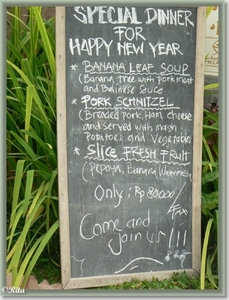 SPECIAL DINNER
FOR
HAPPY NEW YEAR
* BANANA LEAF SOUP
(Banana tree with pork meat
and Balinese Sauce
* PORK SCHNITZEL
(Breaded pork, Ham cheese
and served with mash
Potatoes and Vegetables
* SLICE FRESH FRUIT
(Papaya, Banana
Only : Rp 80000/
+Tax
Come and
Join us !!!
©Rita